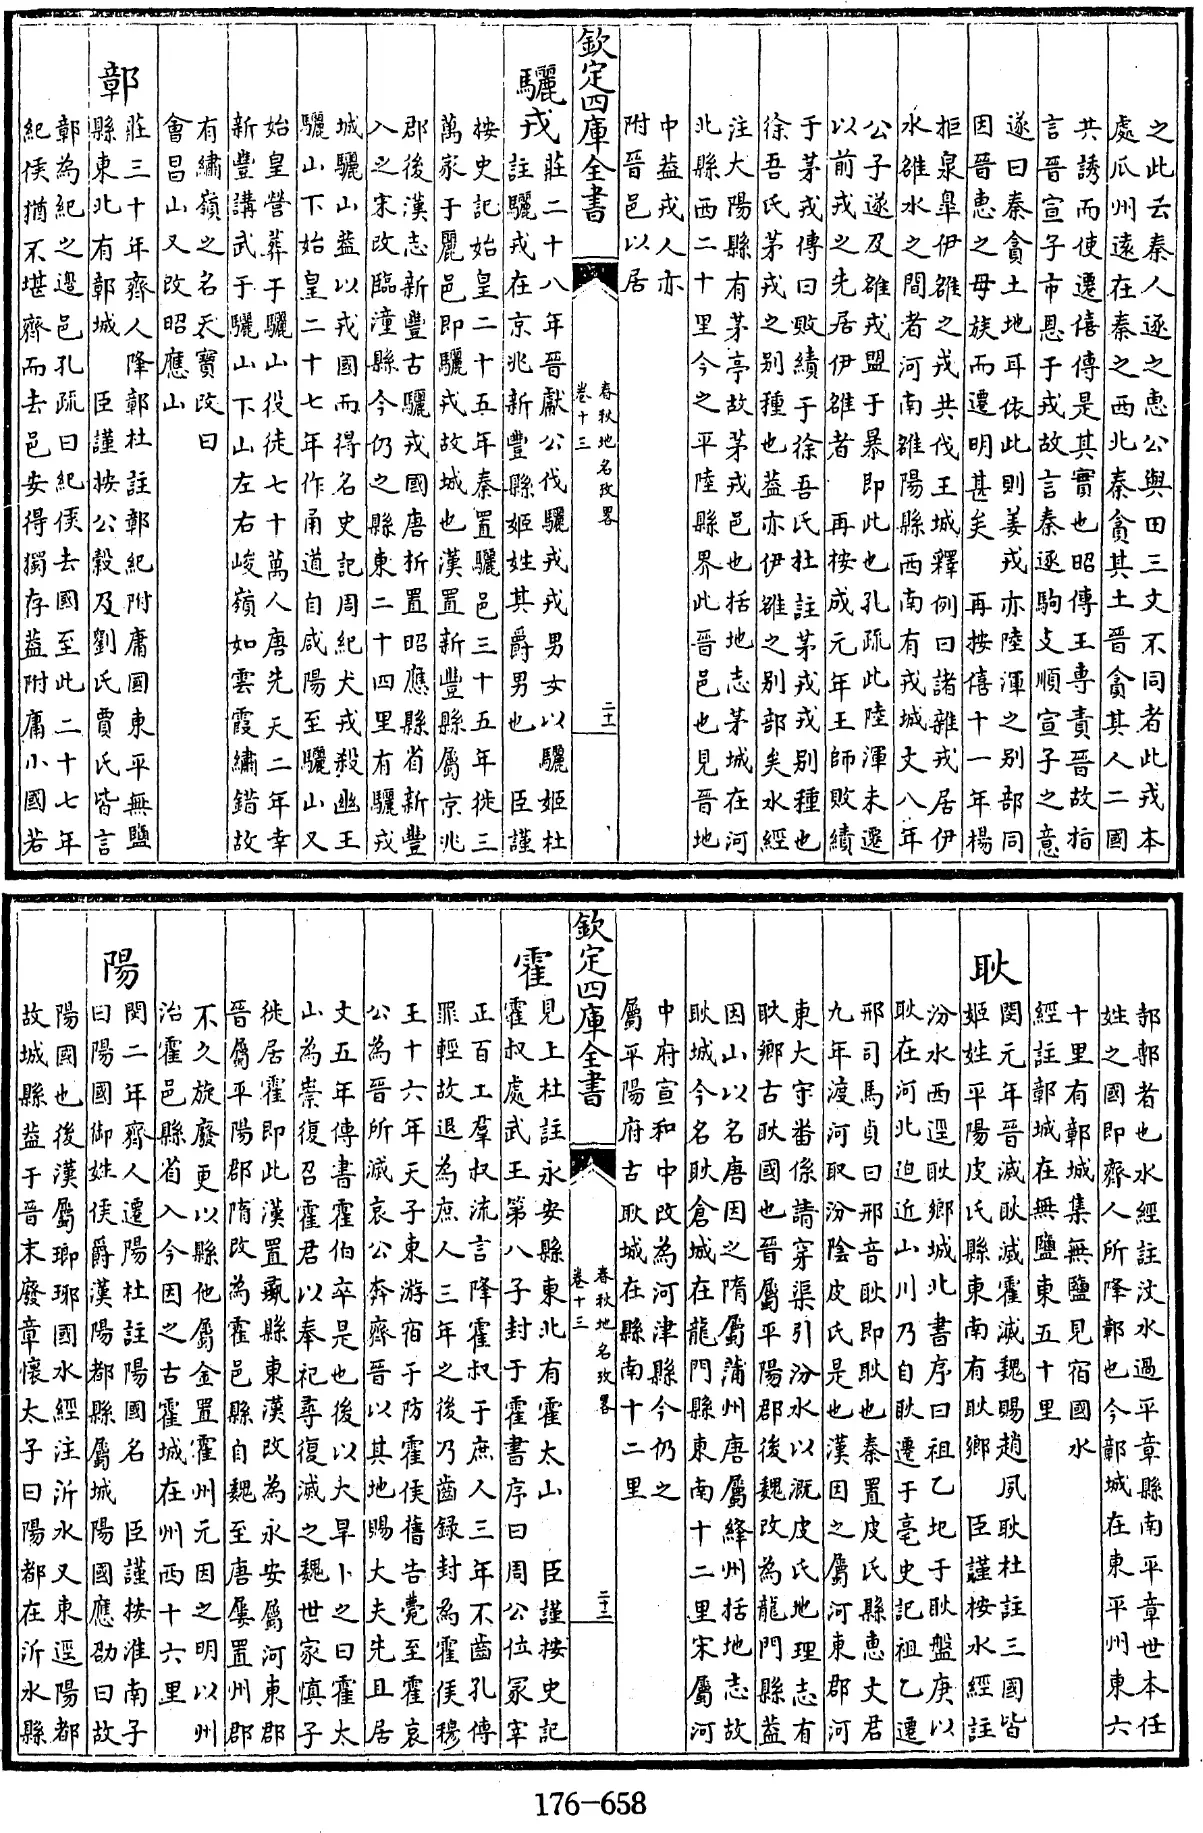 之此云秦人逐之惠公與田三文不同者此戎本
處瓜州遠在秦之西北秦貪其土晉貪其人二國
共誘而使遷僖傳是其實也昭傳王專責晉故指
言晉宣子市恩于戎故言秦逐駒支順宣子之意
遂曰秦貪土地耳依此則姜戎亦陸渾之别部同
因晉惠之母族而遷明甚矣 再按僖十一年楊
拒泉臯伊雒之戎共伐王城釋例曰諸雜戎居伊
水雒水之間者河南雒陽縣西南有戎城文八年
公子遂及雒戎盟于暴即此也孔疏此陸渾未遷
以前戎之先居伊雒者 再按成元年王師敗績
于茅戎傳曰敗績于徐吾氏杜註茅戎戎别種也
徐吾氏茅戎之别種也葢亦伊雒之别部矣水經
注大陽縣有茅亭故茅戎邑也括地志茅城在河
北縣西二十里今之平陸縣界此晉邑也見晉地
中葢戎人亦
附晉邑以居
欽定四庫全書
春秋地名攷畧
卷十三
二十二
驪戎
莊二十八年晉獻公伐驪戎戎男女以驪姬杜
註驪戎在京兆新豐縣姬姓其爵男也 臣謹
按史記始皇二十五年秦置驪邑三十五年徙三
萬家于麗邑即驪戎故城也漢置新豐縣屬京兆
郡後漢志新豐古驪戎國唐折置昭應縣省新豐
入之宋改臨潼縣今仍之縣東二十四里有驪戎
城驪山葢以戎國而得名史記周紀犬戎殺幽王
驪山下始皇二十七年作甬道自咸陽至驪山又
始皇營葬于驪山役徒七十萬人唐先天二年幸
新豐講武于驪山下山左右峻嶺如雲霞繡錯故
有繡嶺之名天寶改曰
會昌山又改昭應山
鄣
莊三十年齊人降鄣杜註鄣紀附庸國東平無鹽
縣東北有鄣城 臣謹按公糓及劉氏賈氏皆言
鄣為紀之邊邑孔疏曰紀侯去國至此二十七年
紀侯猶不堪齊而去邑安得獨存葢附庸小國若
郜鄣者也水經註汶水過平章縣南平章世本任
姓之國即齊人所降鄣也今鄣城在東平州東六
十里有鄣城集無鹽見宿國水
經註鄣城在無鹽東五十里
耿
閔元年晉滅耿滅霍滅魏賜趙夙耿杜註三國皆
姬姓平陽皮氏縣東南有耿鄉 臣謹按水經註
汾水西逕耿鄉城北書序曰祖乙圮于耿盤庚以
耿在河北迫近山川乃自耿遷于亳史記祖乙遷
邢司馬貞曰邢音耿即耿也秦置皮氏縣惠文君
九年渡河取汾陰皮氏是也漢因之屬河東郡河
東大守畨係請穿渠引汾水以溉皮氏地理志有
耿鄉古耿國也晉屬平陽郡後魏改為龍門縣葢
因山以名唐因之隋屬蒲州唐屬絳州括地志故
耿城今名耿倉城在龍門縣東南十二里宋屬河
中府宣和中改為河津縣今仍之
屬平陽府古耿城在縣南十二里
欽定四庫全書
春秋地名攷畧
卷十三
二十三
霍
見上杜註永安縣東北有霍太山 臣謹按史記
霍叔處武王第八子封于霍書序曰周公位冢宰
正百工羣叔流言降霍叔于庶人三年不齒孔傳
罪輕故退為庶人三年之後乃齒錄封為霍侯穆
王十六年天子東游宿于防霍侯舊告薨至霍哀
公為晉所滅哀公奔齊晉以其地賜大夫先且居
文五年傳書霍伯卒是也後以大旱卜之曰霍太
山為祟復召霍君以奉祀尋復滅之魏世家慎子
徙居霍即此漢置彘縣東漢改為永安屬河東郡
晉屬平陽郡隋改為霍邑縣自魏至唐屢置州郡
不久旋廢更以縣他屬金置霍州元因之明以州
治霍邑縣省入今因之古霍城在州西十六里
陽
閔二年齊人遷陽杜註陽國名 臣謹按淮南子
曰陽國御姓侯爵漢陽都縣屬城陽國應劭曰故
陽國也後漢屬瑯琊國水經注沂水又東逕陽都
故城縣葢于晉末廢章懷太子曰陽都在沂水縣
176-658